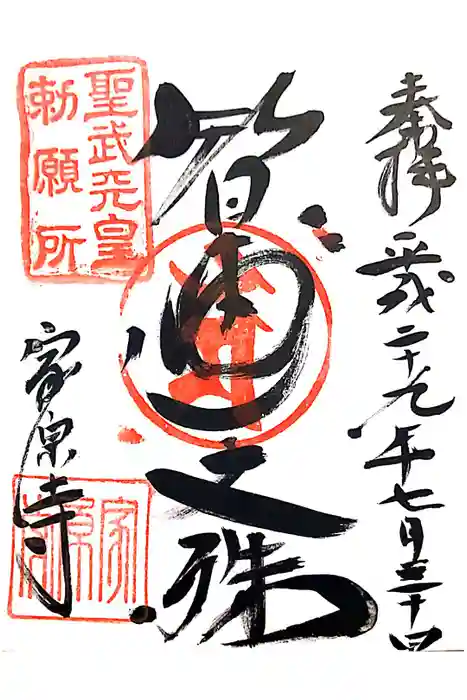 奉拝 平成二十九年七月三十日
智恵文殊
聖武天皇
勅願所
家原寺
家原寺